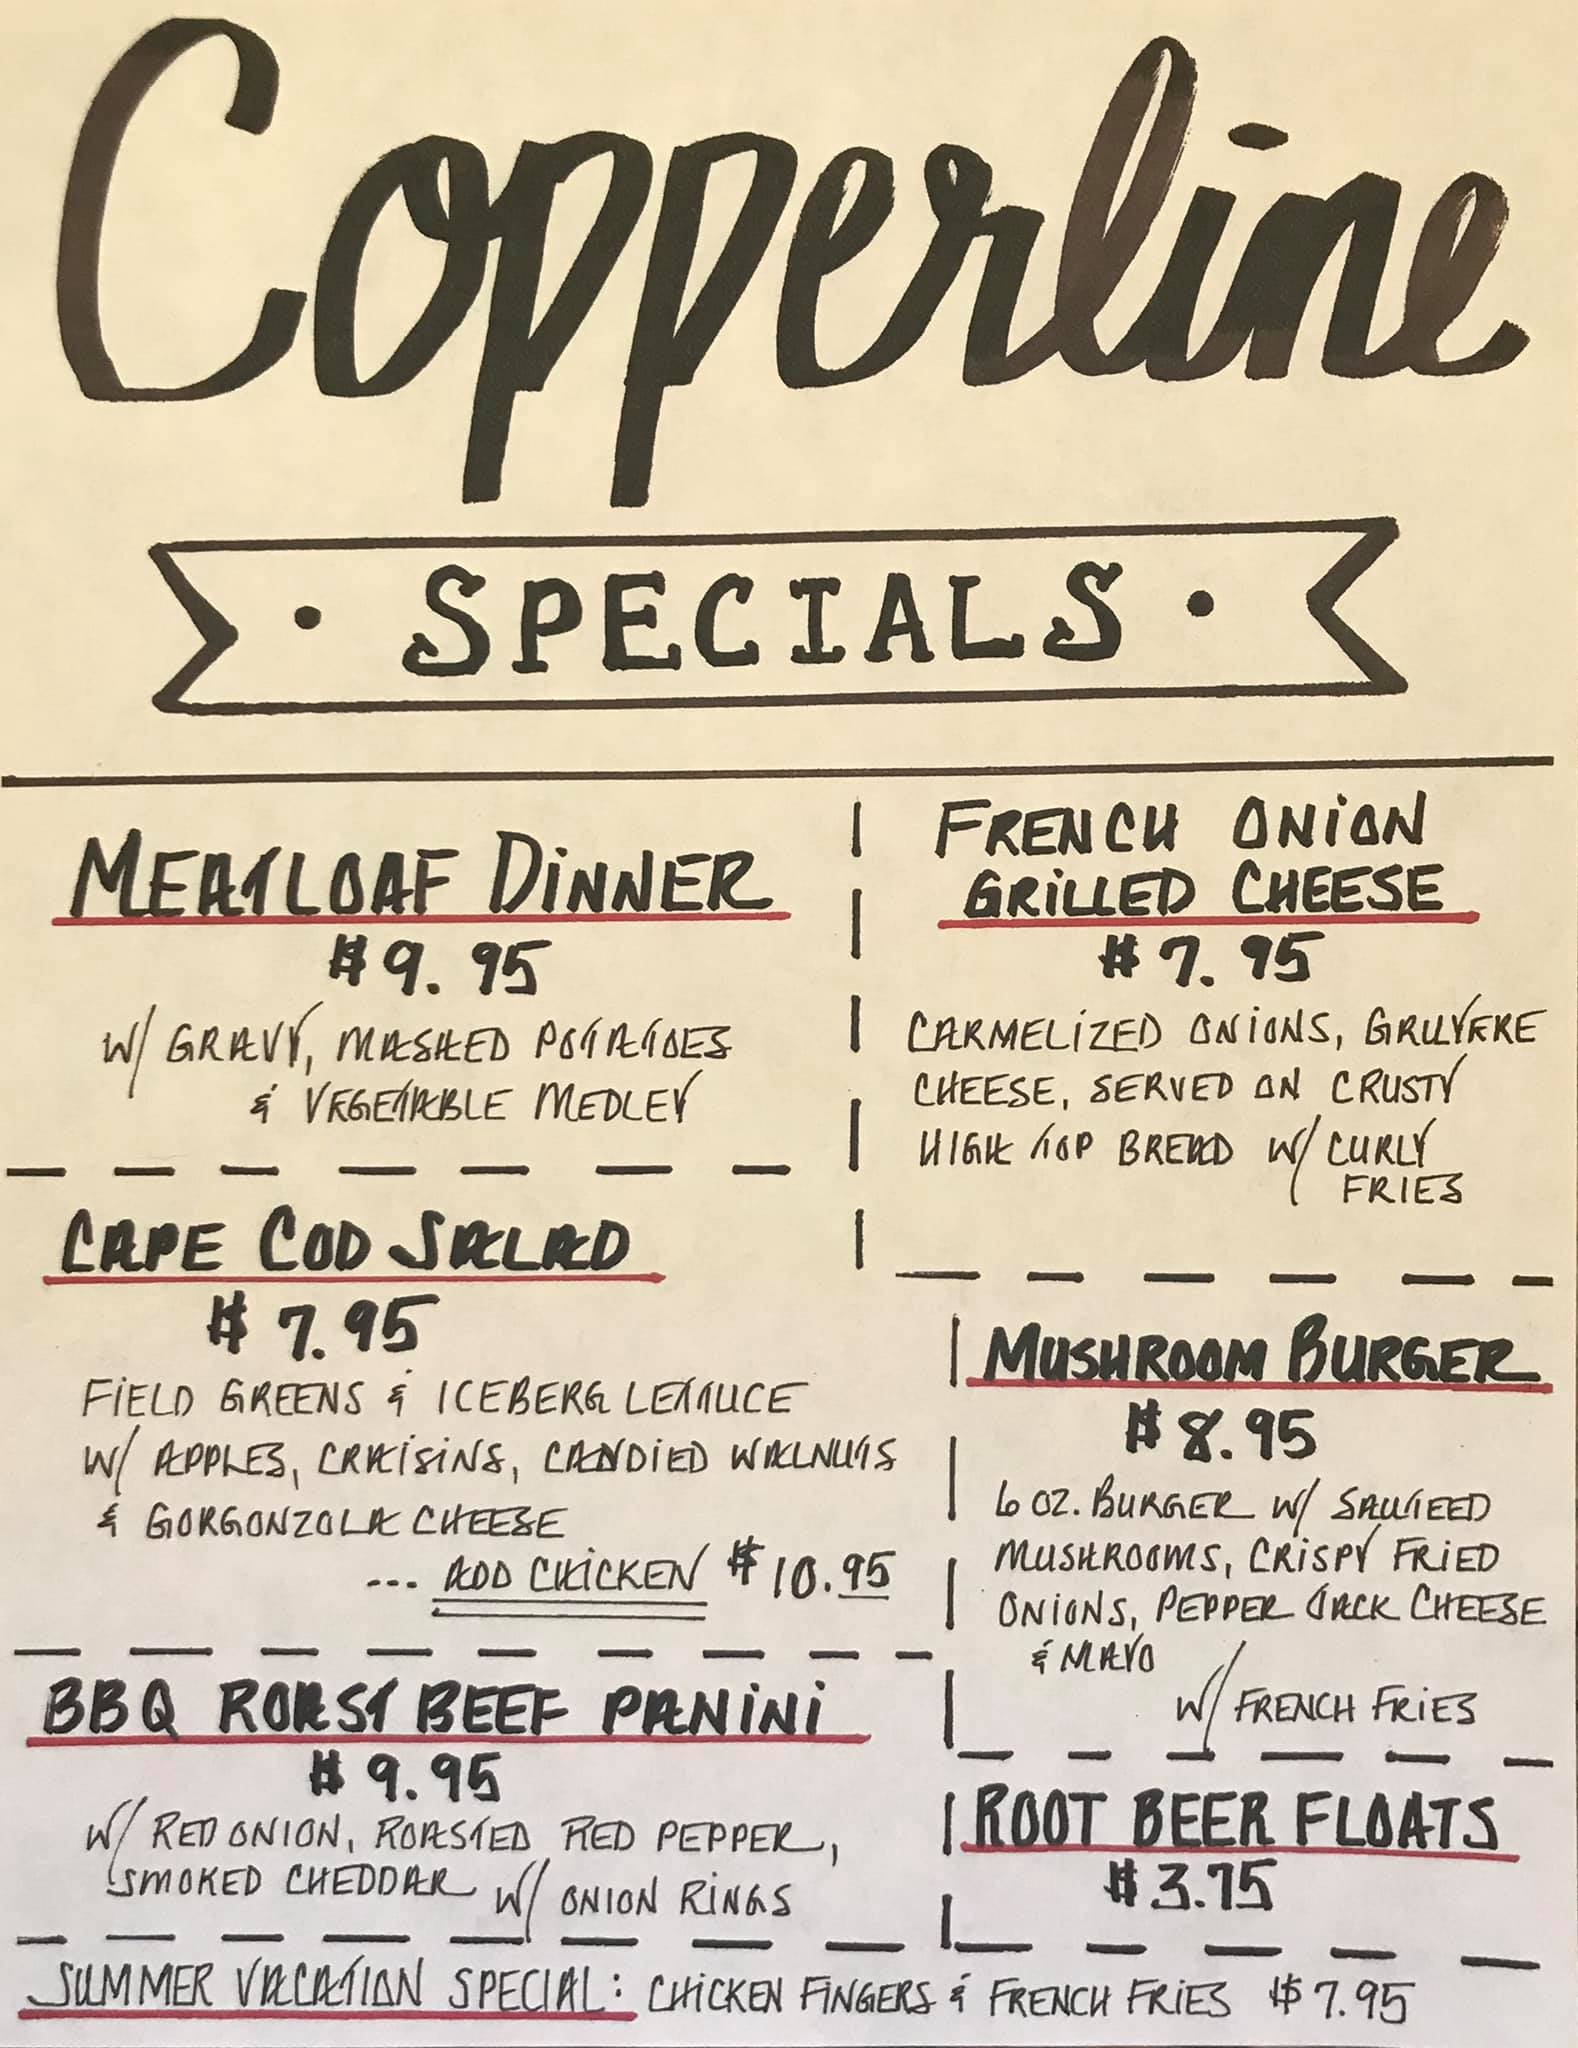 Copperline
• SPECIALS •
MEATLOAF DINNER
$9.95
W/ GRAVY, MASHED POTATOES
& VEGETABLE MEDLEY
FRENCH ONION
GRILLED CHEESE
$7.95
CARMELIZED ONIONS, GRUYERE
CHEESE, SERVED ON CRUSTY
HIGH TOP BREAD W/ CURLY
FRIES
CAPE COD SALAD
$7.95
FIELD GREENS & ICEBERG LETTUCE
W/ APPLES, CRAISINS, CANDIED WALNUTS
& GORGONZOLA CHEESE
... ADD CHICKEN $10.95
MUSHROOM BURGER
$8.95
6 OZ. BURGER W/ SAUTEED
MUSHROOMS, CRISPY FRIED
ONIONS, PEPPER JACK CHEESE
& MAYO
W/ FRENCH FRIES
BBQ ROAST BEEF PANINI
$9.95
W/ RED ONION, ROASTED RED PEPPER,
SMOKED CHEDDAR W/ ONION RINGS
ROOT BEER FLOATS
$3.75
SUMMER VACATION SPECIAL: CHICKEN FINGERS & FRENCH FRIES $7.95